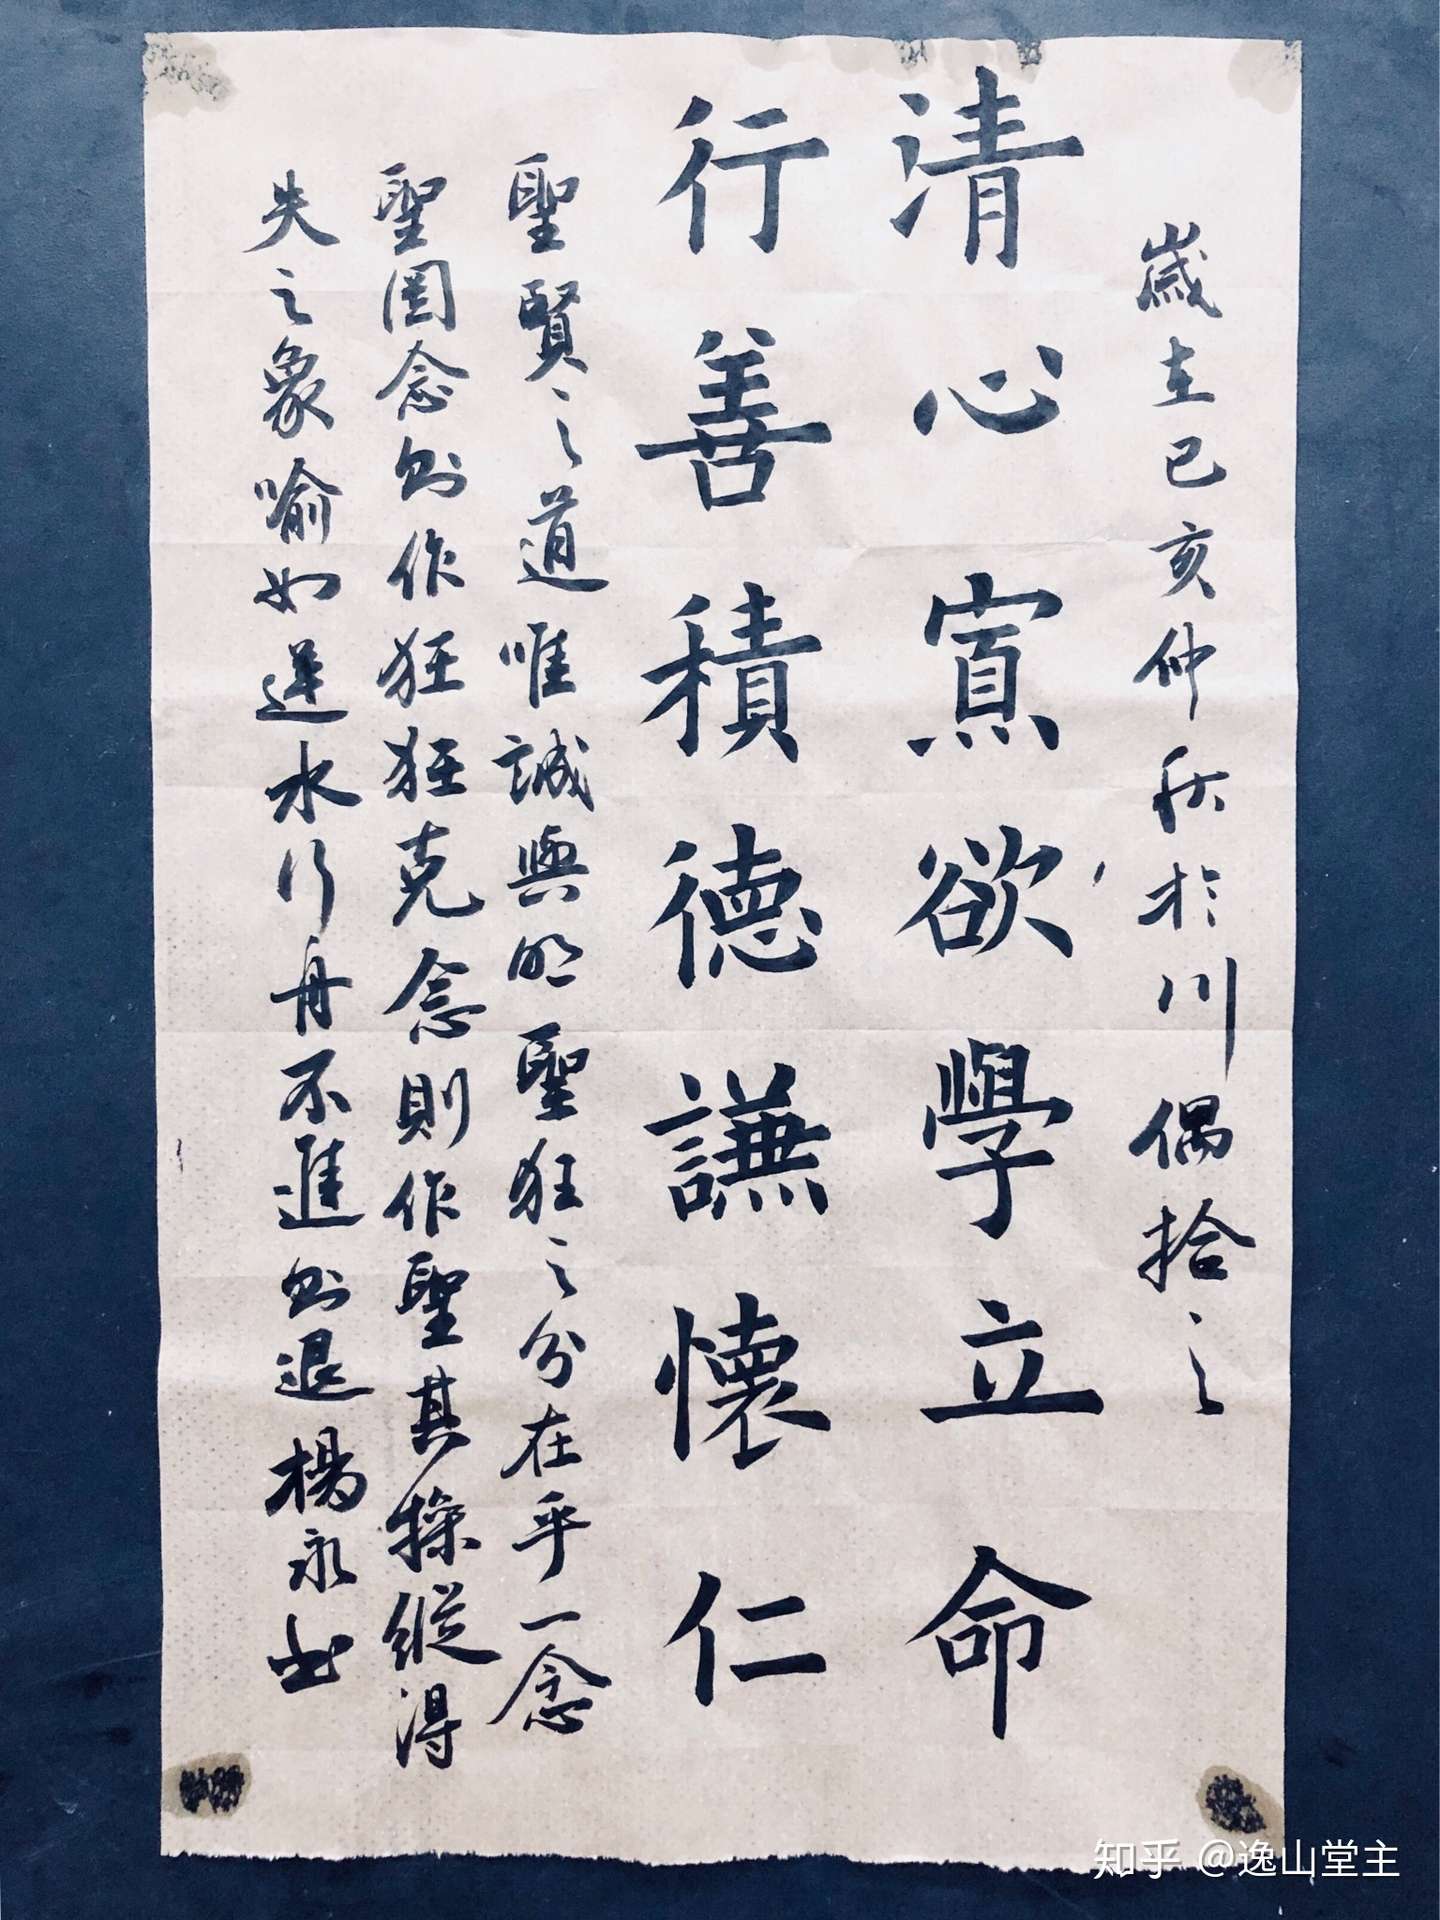 歲在己亥仲秋於川偶拾之
清心寡欲學立命
行善積德謙懷仁
聖賢之道唯誠與明聖狂之分在乎一念
聖罔念則作狂狂克念則作聖其操縱得
失之象喻如逆水行舟不進則退楊永书
知乎 @逸山堂主